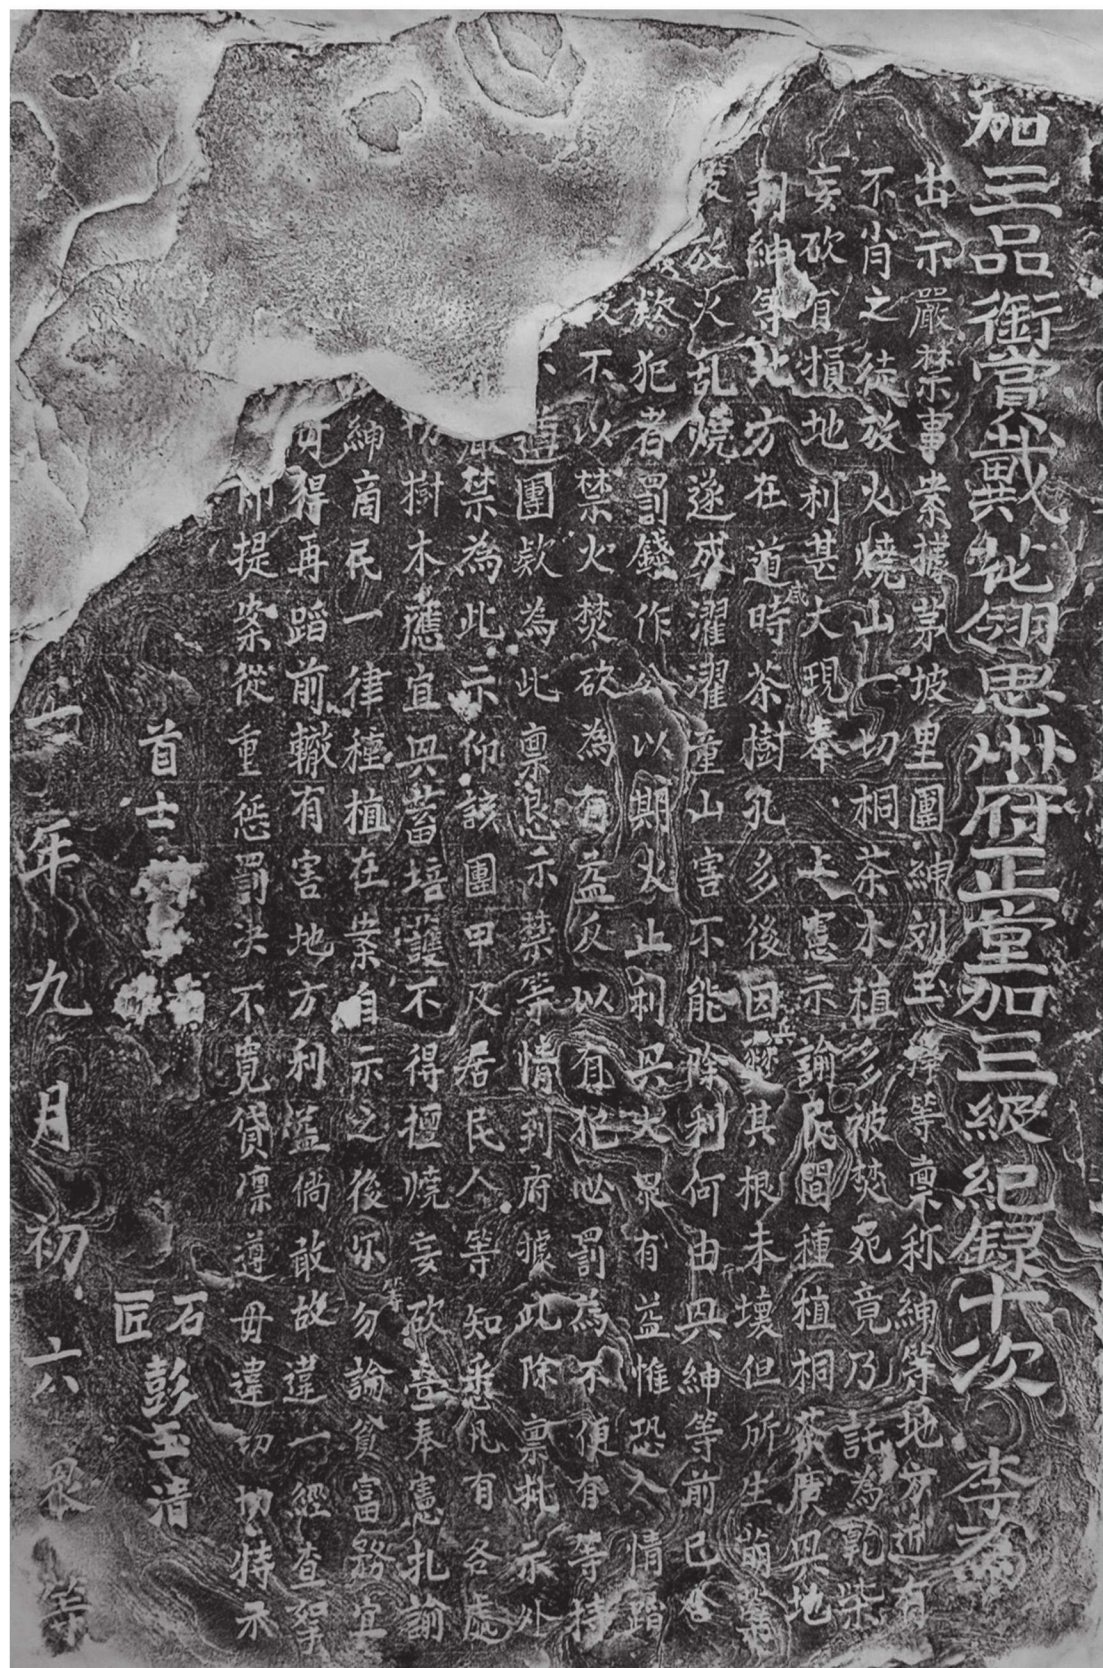 加三品衔賞戴花翎思州府正堂加三級紀錄十次 李 為
出示嚴禁事案據茅坡里團紳刘玉 等稟称紳等地方近有
不肖之徒放火燒山一切桐茶木植多被焚宛竟乃託為乾柴
妄砍有損地利甚大現奉 上憲示諭民間種植桐茶廣興地
利紳等此方在道咸時茶樹孔多後因兵 其根未壞但所生萌蘖
放火乱燒遂成濯濯童山害不能除利何由興紳等前已
欵犯者罰錢作公以期火止利興夫眾有益惟恐人情
不以禁火焚砍為有益反以有犯必罰為不便有等持
遵團欵為此稟懇示禁等情到府據此除稟批示外
禁為此示仰該團甲及居民人等知悉凡有各處
樹木應宜興蓄培護不得擅燒妄砍 奉憲扎諭
紳商民一律種植在案自示之後尔等勿論貧富務宜
毋得再蹈前轍有害地方利益倘敢故違一經查拏
即提案從重惩罰决不寬貸凛遵毋違切切特示
首士
石匠 彭玉清
二年九月初六 等